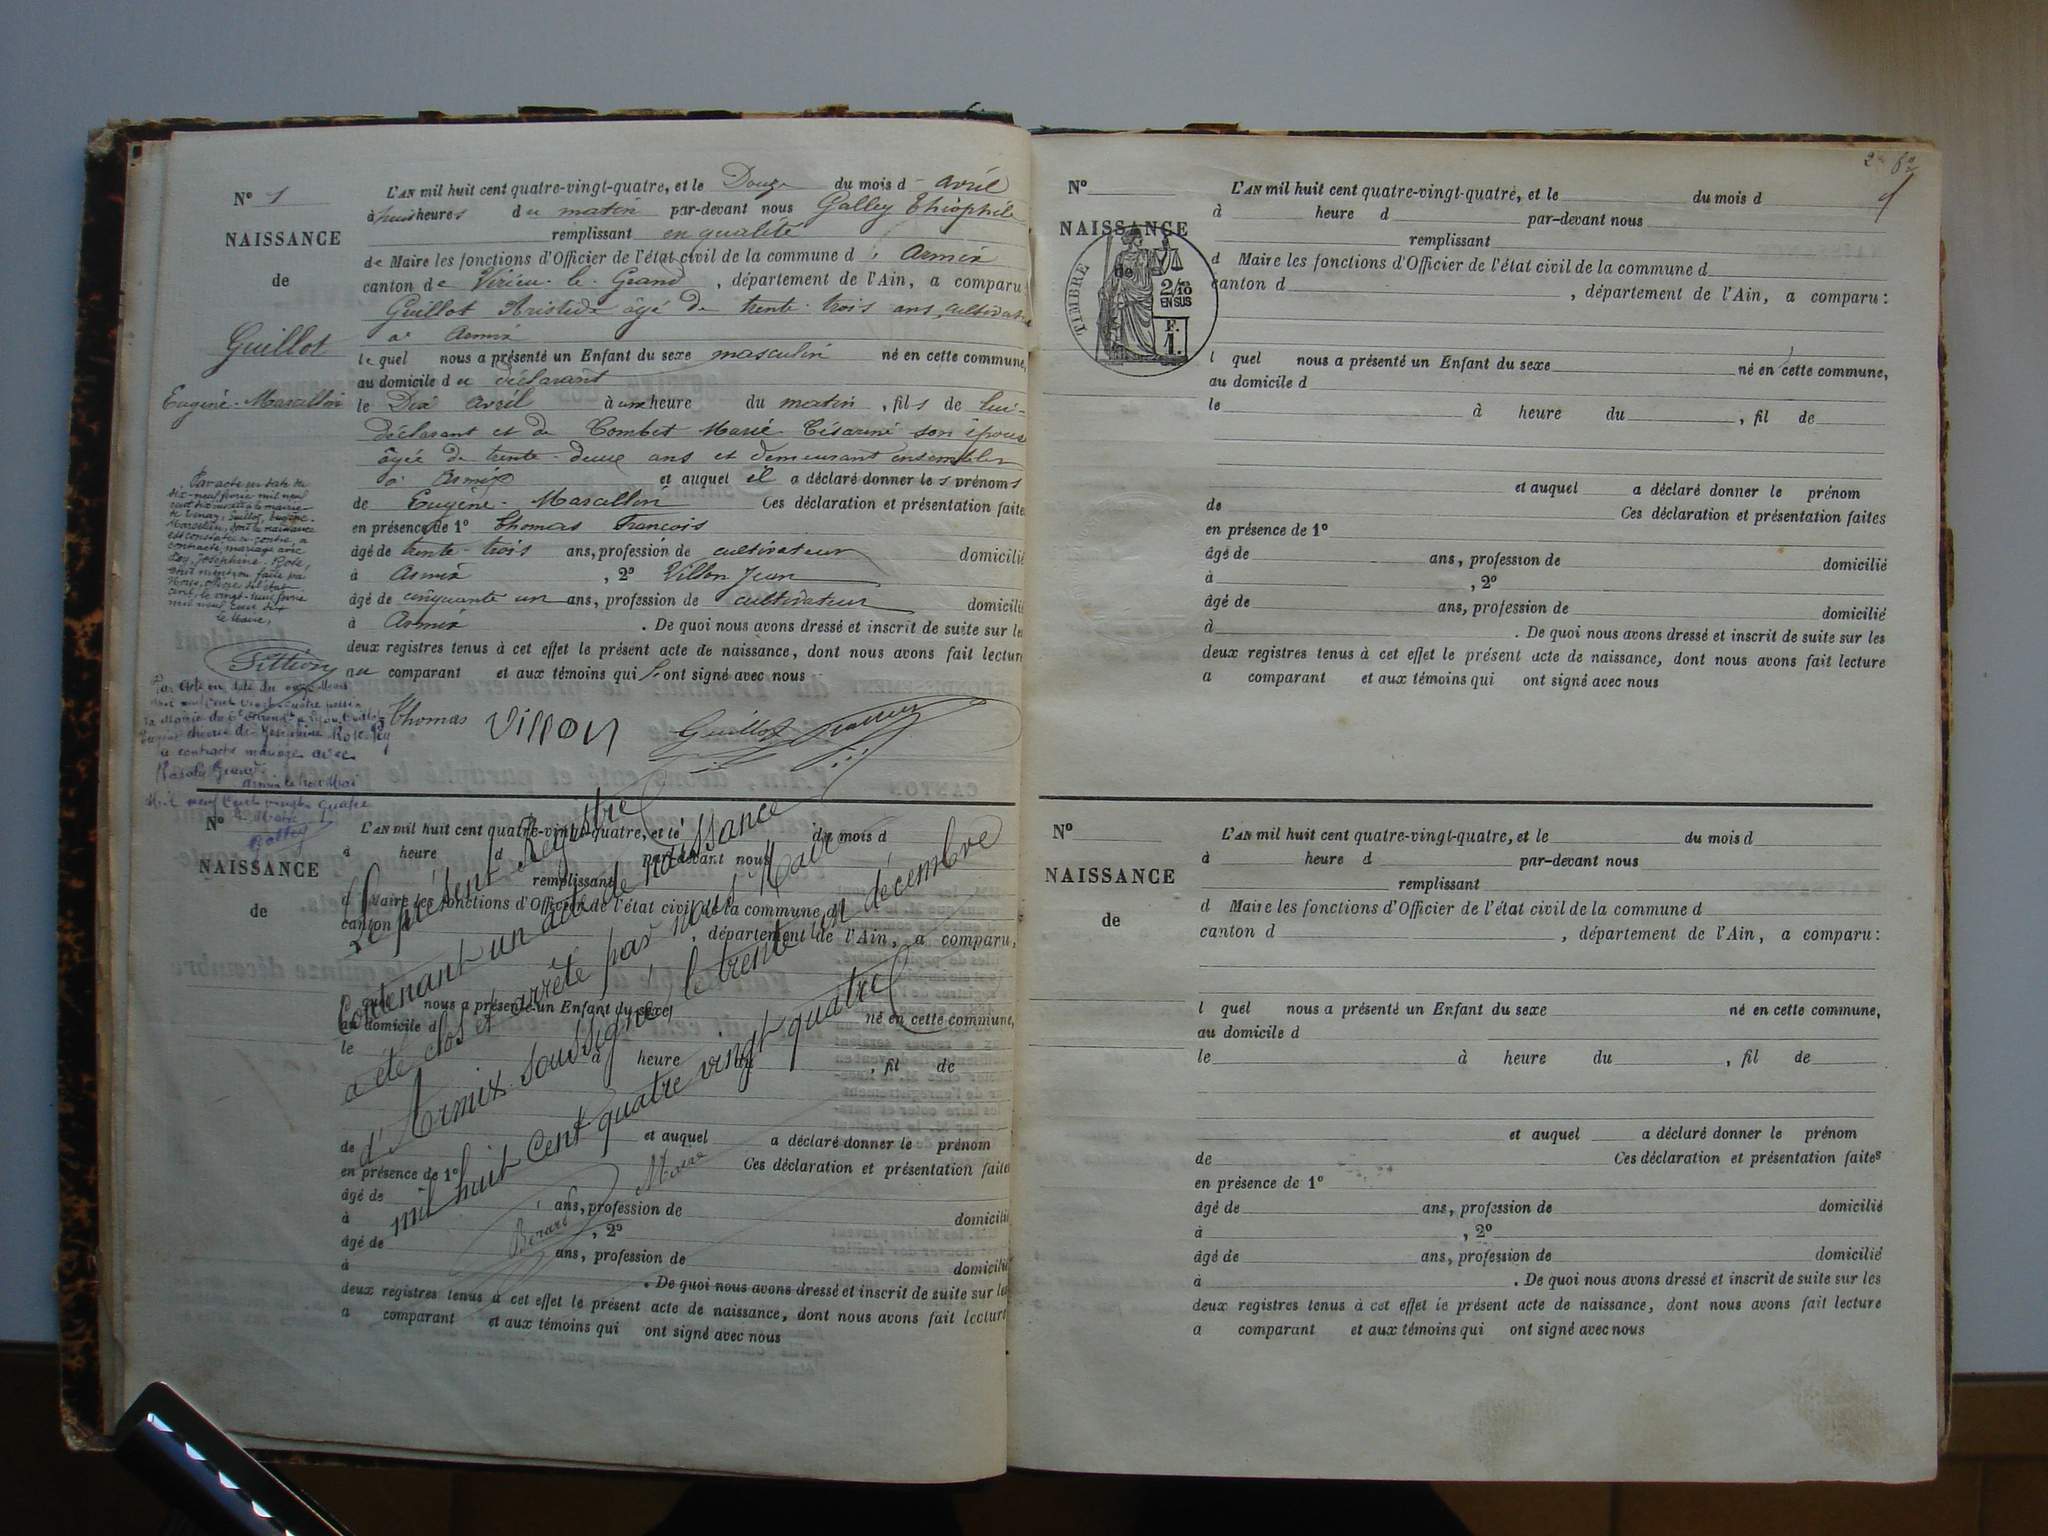 N° 1
NAISSANCE
de
Guillot
Eugène-Marcellin
L'AN mil huit cent quatre-vingt-quatre, et le Douze du mois d avril
à huit heures du matin par-devant nous Galley Théophile
remplissant en qualité
de Maire les fonctions d'Officier de l'état civil de la commune d' Armix
canton de Virieu-le-Grand, département de l'Ain, a comparu
Guillot Aristide âgé de trente-trois ans, cultivateur
à Armix
lequel nous a présenté un Enfant du sexe masculin né en cette commune,
au domicile du déclarant
le Dix avril à une heure du matin, fils de lui-
déclarant et de Combet Marie Césarine son épouse
âgée de trente-deux ans et demeurant ensembles
à Armix et auquel il a déclaré donner les prénoms
de Eugène-Marcellin Ces déclaration et présentation faites
en présence de 1° Thomas François
âgé de trente-trois ans, profession de cultivateur domicilié
à Armix, 2° Villon Jean
âgé de cinquante un ans, profession de cultivateur domicilié
à Armix. De quoi nous avons dressé et inscrit de suite sur les
deux registres tenus à cet effet le présent acte de naissance, dont nous avons fait lecture
au comparant et aux témoins qui ont signé avec nous
Thomas Villon Guillot
Par acte en date du
dix-neuf février mil neuf
cent dix à la mairie
de Guillot, Eugène-
Marcelin, dont la naissance
est constatée ci-contre, a
contracté mariage avec
Rey, Joséphine-Rose,
dont mention faite par
Nous, officier de l'état
civil, le vingt-neuf février
mil neuf cent dix
Le Maire,
Par acte en date du
mil neuf cent vingt-quatre
la Mairie du 6e
Joséphine Rose Rey
a contracté mariage avec
Armix le Mai
Mil neuf cent vingt quatre
Le Maire
Galley
N°
NAISSANCE
de
L'AN mil huit cent quatre-vingt-quatre, et le du mois d
à heure d par-devant nous
remplissant
d Maire les fonctions d'Officier de l'état civil de la commune d
canton d, département de l'Ain, a comparu:
l quel nous a présenté un Enfant du sexe né en cette commune,
au domicile d
le à heure du, fil de
et auquel a déclaré donner le prénom
de Ces déclaration et présentation faites
en présence de 1°
âgé de ans, profession de domicilié
à, 2°
âgé de ans, profession de domicilié
à. De quoi nous avons dressé et inscrit de suite sur les
deux registres tenus à cet effet le présent acte de naissance, dont nous avons fait lecture
a comparant et aux témoins qui ont signé avec nous
Le présent Registre
Contenant un acte de naissance
a été clos et arrêté par nous Maire
d'Armix soussigné, le trente un décembre
mil huit cent quatre vingt quatre
Maire
2
N°
NAISSANCE
de
TIMBRE
2/10
EN SUS
F.
1.
L'AN mil huit cent quatre-vingt-quatre, et le du mois d
à heure d par-devant nous
remplissant
d Maire les fonctions d'Officier de l'état civil de la commune d
canton d, département de l'Ain, a comparu:
l quel nous a présenté un Enfant du sexe né en cette commune,
au domicile d
le à heure du, fil de
et auquel a déclaré donner le prénom
de Ces déclaration et présentation faites
en présence de 1°
âgé de ans, profession de domicilié
à, 2°
âgé de ans, profession de domicilié
à. De quoi nous avons dressé et inscrit de suite sur les
deux registres tenus à cet effet le présent acte de naissance, dont nous avons fait lecture
a comparant et aux témoins qui ont signé avec nous
N°
NAISSANCE
de
L'AN mil huit cent quatre-vingt-quatre, et le du mois d
à heure d par-devant nous
remplissant
d Maire les fonctions d'Officier de l'état civil de la commune d
canton d, département de l'Ain, a comparu:
l quel nous a présenté un Enfant du sexe né en cette commune,
au domicile d
le à heure du, fil de
et auquel a déclaré donner le prénom
de Ces déclaration et présentation faites
en présence de 1°
âgé de ans, profession de domicilié
à, 2°
âgé de ans, profession de domicilié
à. De quoi nous avons dressé et inscrit de suite sur les
deux registres tenus à cet effet le présent acte de naissance, dont nous avons fait lecture
a comparant et aux témoins qui ont signé avec nous